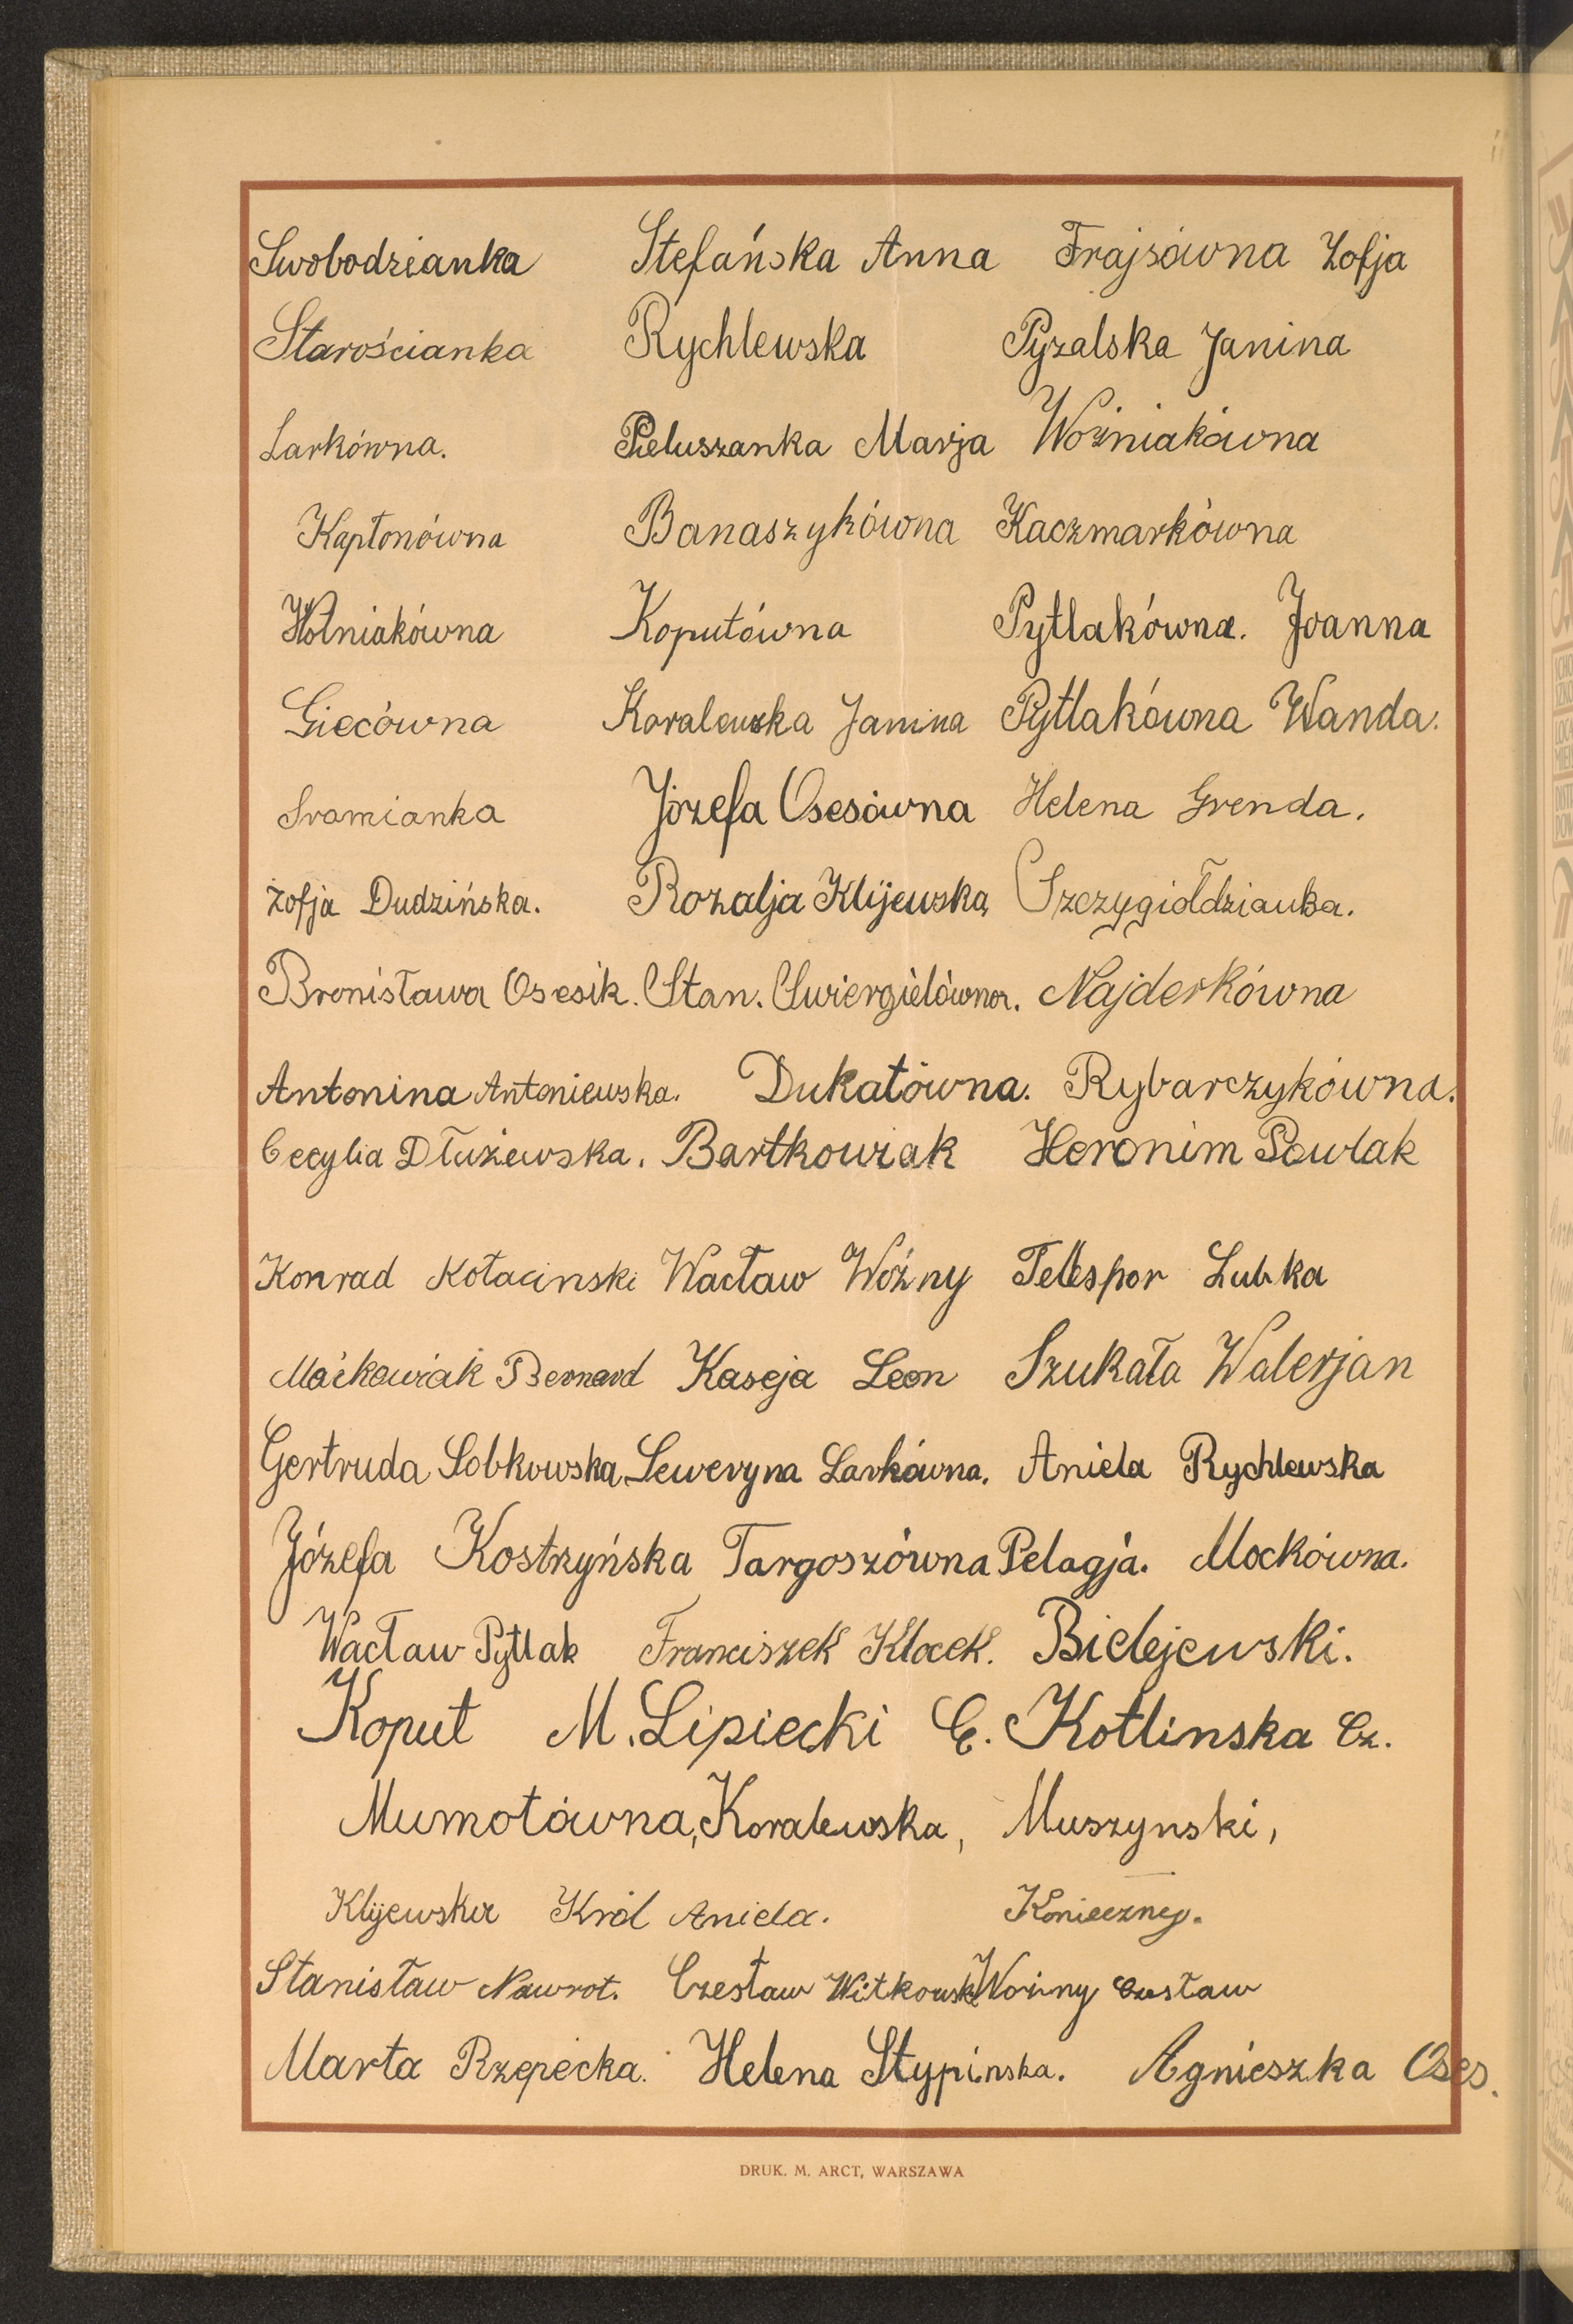 Swobodzianka Stefańska Anna Frajsówna Zofja
Starościanka Rychlewska Pyzalska Janina
Larkówna. Pieluszanka Marja Woźniakówna
Kapłonówna Banaszykówna Kaczmarkówna
Wolniakówna Koputówna Pytlakówna. Joanna
Giecówna Koralewska Janina Pytlakówna Wanda.
Sramianka Józefa Osesówna Helena Grenda.
Zofja Dudzińska. Rozalja Klijewska Szczygiołdzianka.
Bronisława Osesik. Stan. Swiergielówna. Najderkówna
Antonina Antoniewska. Dukatówna. Rybarczykówna.
Cecylia Dłużewska. Bartkowiak Heronim Pawlak
Konrad Kołacinski Wacław Woźny Telespor Lubka
Maćkowiak Bernard Kaseja Leon Szukała Walerjan
Gertruda Sobkowska, Seweryna Larkówna. Aniela Rychlewska
Józefa Kostrzyńska Targoszówna Pelagja. Mockówna.
Wacław Pytlak Franciszek Klocek. Bielejewski.
Koput M. Lipiecki C. Kotlinska Cz.
Mumotówna, Koralewska, Muszynski,
Klijewska Król Aniela. Konieczny.
Stanisław Nawrot. Czesław Witkowski Woźny Czesław
Marta Rzepecka. Helena Stypinska. Agnieszka Oses.
DRUK. M. ARCT, WARSZAWA